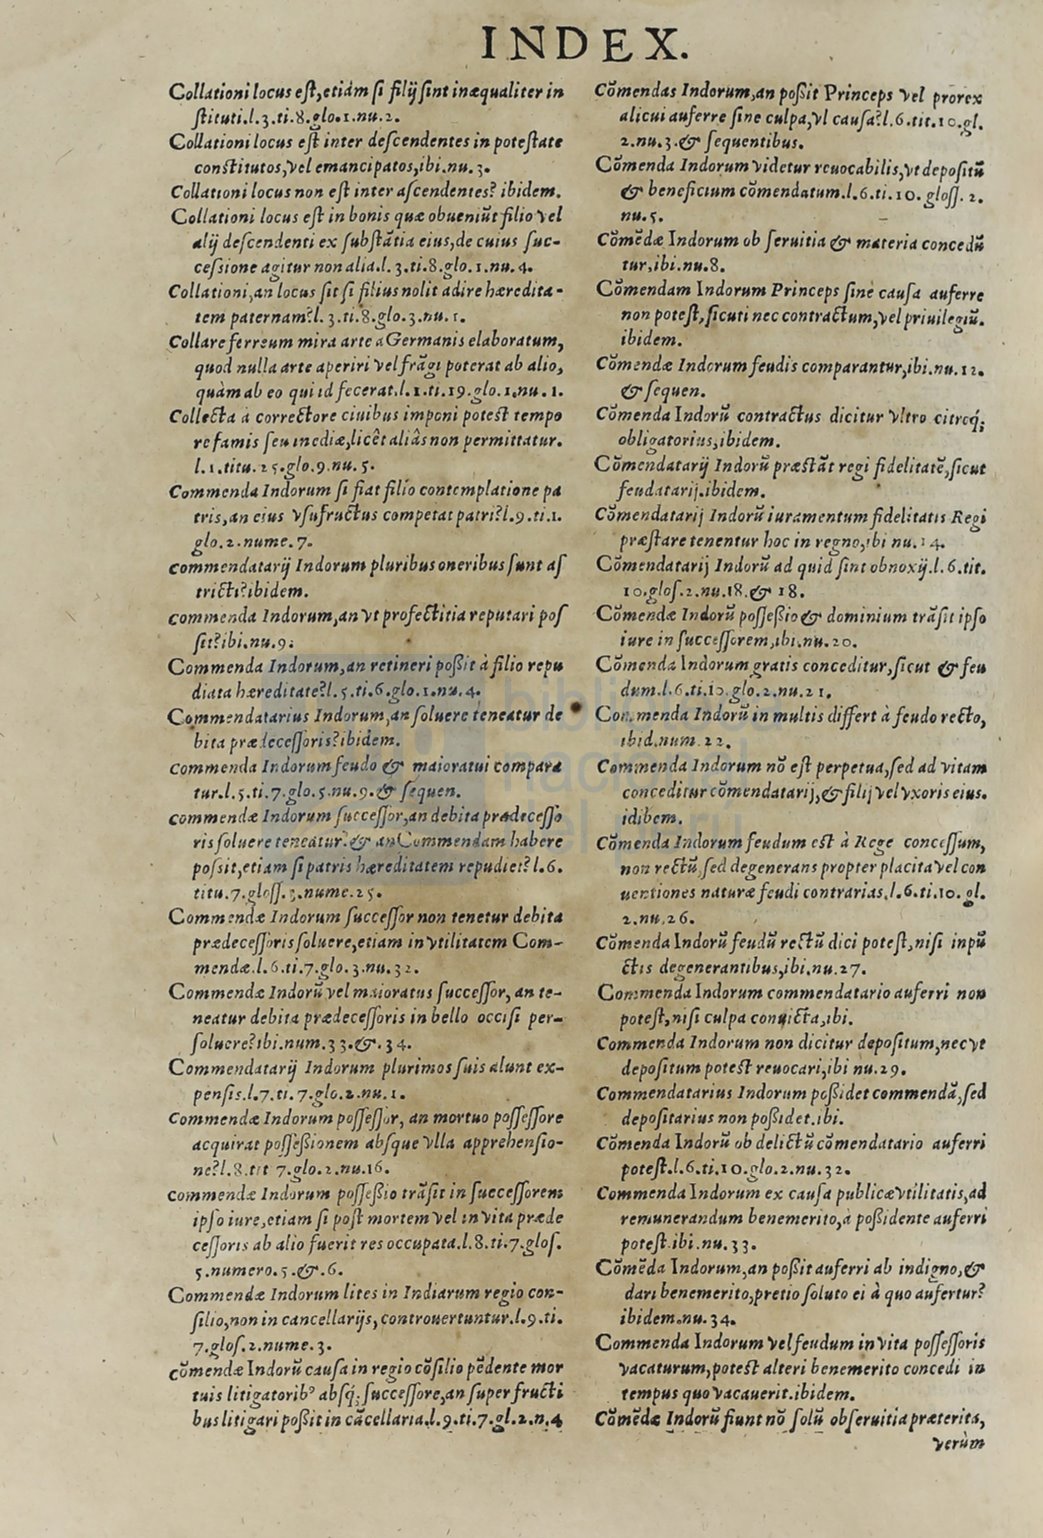 INDEX.
Collationi locus eſt, etiám ſi filij ſint inæqualiter in
ſtituti.l.3.ti.8.glo.1.nu.2.
Collationi locus eſt inter deſcendentes in poteſtate
conſtitutos, vel emancipatos, ibi.nu.3.
Collationi locus non eſt inter aſcendentes? ibidem.
Collationi locus eſt in bonis quæ obueniũt filio vel
alij deſcendenti ex ſubſtãtia eius, de cuius ſuc-
ceſsione agitur non alia.l.3.ti.8.glo.1.nu.4.
Collationi, an locus ſit ſi filius nolit adire hæredita-
tem paternam?l.3.ti.8.glo.3.nu.1.
Collare ferreum mira arte a Germanis elaboratum,
quod nulla arte aperiri vel frãgi poterat ab alio,
quàm ab eo qui id fecerat.l.1.ti.19.glo.1.nu.1.
Collecta á correctore ciuibus imponi poteſt tempo
re famis ſeu inediæ, licêt aliâs non permittatur.
l.1.titu.25.glo.9.nu.5.
Commenda Indorum ſi fiat filio contemplatione pa
tris, an eius vſufructus competat patri?l.9.ti.1.
glo.2.nume.7.
commendatarij Indorum pluribus oneribus ſunt aſ
tricti?ibidem.
commenda Indorum, an vt profectitia reputari poſ
ſit?ibi.nu.9.
Commenda Indorum, an retineri poßit à filio repu
diata hæreditate?l.5.ti.6.glo.1.nu.4.
Commendatarius Indorum, an ſoluere teneatur de
bita prædeceſſoris?ibidem.
commenda Indorum feudo & maioratui compara
tur.l.5.ti.7.glo.5.nu.9.& ſequen.
commendæ Indorum ſucceſſor, an debita prædeceſſo
ris ſoluere teneatur? & an Commendam habere
poſsit, etiam ſi patris hæreditatem repudiet?l.6.
titu.7.gloſſ.3.nume.25.
Commendæ Indorum ſucceſſor non tenetur debita
prædeceſſoris ſoluere, etiam in vtilitatem Com-
mendæ.l.6.ti.7.glo.3.nu.32.
Commendæ Indorũ vel maioratus ſucceſſor, an te-
neatur debita prædeceſſoris in bello occiſi per-
ſoluere?ibi.num.33.&.34.
Commendatarij Indorum plurimos ſuis alunt ex-
penſis.l.7.ti.7.glo.2.nu.1.
Commendæ Indorum poſſeſſor, an mortuo poſſeſſore
acquirat poſſeßionem abſque vlla apprehenſio-
ne?l.8.tit 7.glo.2.nu.16.
commendæ Indorum poſſeßio trãſit in ſucceſſorem
ipſo iure, etiam ſi poſt mortem vel in vita præde
ceſſoris ab alio fuerit res occupata.l.8.ti.7.gloſ.
5.numero.5.&.6.
Commendæ Indorum lites in Indiarum regio con-
ſilio, non in cancellarijs, controuertuntur.l.9.ti.
7.gloſ.2.nume.3.
cõmendæ Indorũ cauſa in regio cõſilio pẽdente mor
tuis litigatoribꝰ abſq; ſucceſſore, an ſuper fructi
bus litigari poßit in cãcellaria.l.9.ti.7.gl.2.n.4
Cõmendas Indorum, an poßit Princeps vel prorex
alicui auferre ſine culpa, vl cauſa?l.6.tit.10.gl.
2.nu.3.& ſequentibus.
Cõmenda Indorum videtur reuocabilis, vt depoſitũ
& beneficium cõmendatum.l.6.ti.10.gloſſ.2.
nu.5.
Cõmẽdæ Indorum ob ſeruitia & materia concedũ
tur, ibi.nu.8.
Cõmendam Indorum Princeps ſine cauſa auferre
non poteſt, ſicuti nec contractum, vel priuilegiũ.
ibidem.
Cõmendæ Indorum feudis comparantur, ibi.nu.12.
& ſequen.
Cõmenda Indorũ contractus dicitur vltro citroq;
obligatorius, ibidem.
Cõmendatarij Indorũ præſtãt regi fidelitatẽ, ſicut
feudatarij.ibidem.
Cõmendatarij Indorũ iuramentum fidelitatis Regi
præſtare tenentur hoc in regno, ibi nu.14.
Cõmendatarij Indorũ ad quid ſint obnoxij.l.6.tit.
10.gloſ.2.nu.18.& 18.
Cõmendæ Indorũ poſſeßio & dominium trãſit ipſo
iure in ſucceſſorem, ibi.nu.20.
Cõmenda Indorum gratis conceditur, ſicut & feu
dum.l.6.ti.10.glo.2.nu.21.
Commenda Indorũ in multis differt à feudo recto,
ibid.num.22.
Commenda Indorum nõ eſt perpetua, ſed ad vitam
conceditur cõmendatarij, & filij vel vxoris eius.
idibem.
Cõmenda Indorum feudum eſt à Rege conceſſum,
non rectũ, ſed degenerans propter placita vel con
uentiones naturæ feudi contrarias.l.6.ti.10.gl.
2.nu.26.
Cõmenda Indorũ feudũ rectũ dici poteſt, niſi in pũ
ctis degenerantibus, ibi.nu.27.
Commenda Indorum commendatario auferri non
poteſt, niſi culpa conuicta, ibi.
Commenda Indorum non dicitur depoſitum, nec vt
depoſitum poteſt reuocari, ibi nu.29.
Commendatarius Indorum poßidet commendã, ſed
depoſitarius non poßidet.ibi.
Cõmenda Indorũ ob delictũ cõmendatario auferri
poteſt.l.6.ti.10.glo.2.nu.32.
Commenda Indorum ex cauſa publicæ vtilitatis, ad
remunerandum benemerito, à poßidente auferri
poteſt.ibi.nu.33.
Cõmẽda Indorum, an poßit auferri ab indigno, &
dari benemerito, pretio ſoluto ei à quo aufertur?
ibidem.nu.34.
Commenda Indorum vel feudum in vita poſſeſſoris
vacaturum, poteſt alteri benemerito concedi in
tempus quo vacauerit.ibidem.
Cõmẽdæ Indorũ fiunt nõ ſolũ ob ſeruitia præterita,
verùm